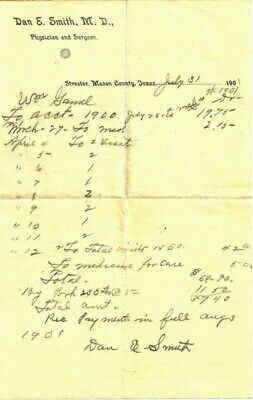 Dan E. Smith, M. D.,
Physician and Surgeon.
Streeter, Mason County, Texas, July 31 1901
Wm Gamel
To acct- 1900 19.75
March-27- To med 2.15-
April 4 To 2 visit
" 5 2
" 6 1
" 7 1
" 8 2
" 9 2
" 10 1
" 11 2
" 12 2 To Total visits
To medicine for Care
Total.
By Pork 11.50
Total amt.
Rec Payment in full Aug 3
1901
Dan E Smith